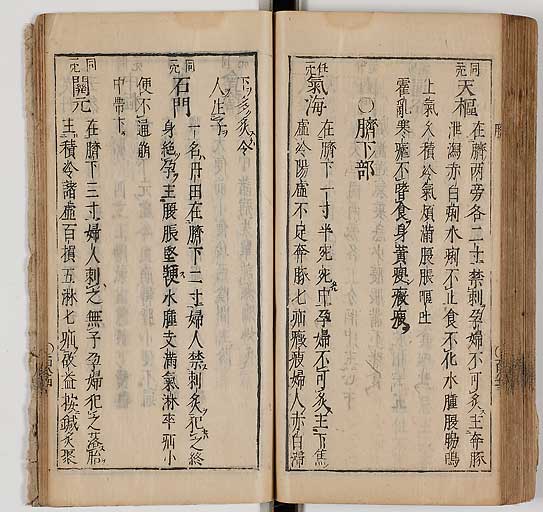 天樞 在臍兩旁各二寸禁刺孕婦不可灸主奔豚
泄瀉赤白痢水痢不止食不化水腫腹腸鳴
上氣 積冷氣煩滿腹脹嘔吐
霍亂寒瘧不嗜食身黃瘦
〇臍下部
氣海 在臍下一寸半宛宛中孕婦不可灸主下焦
虛冷陽虛不足奔豚七疝 婦人赤白帶
下 灸 令
人生子
石門 一名丹田在臍下二寸婦人禁刺灸犯之終
身絕孕主腹脹堅硬水腫支滿氣淋卒疝小
便不通崩
中帶下
關元 在臍下三寸婦人刺之無子孕婦犯之落胎
主積冷諸虛百損五淋七疝 按鍼灸聚